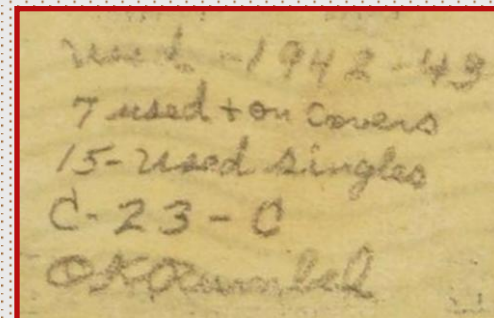 Used - 1942-43
7 used + on covers
15-Used singles
C-23-C
OK Rumbel